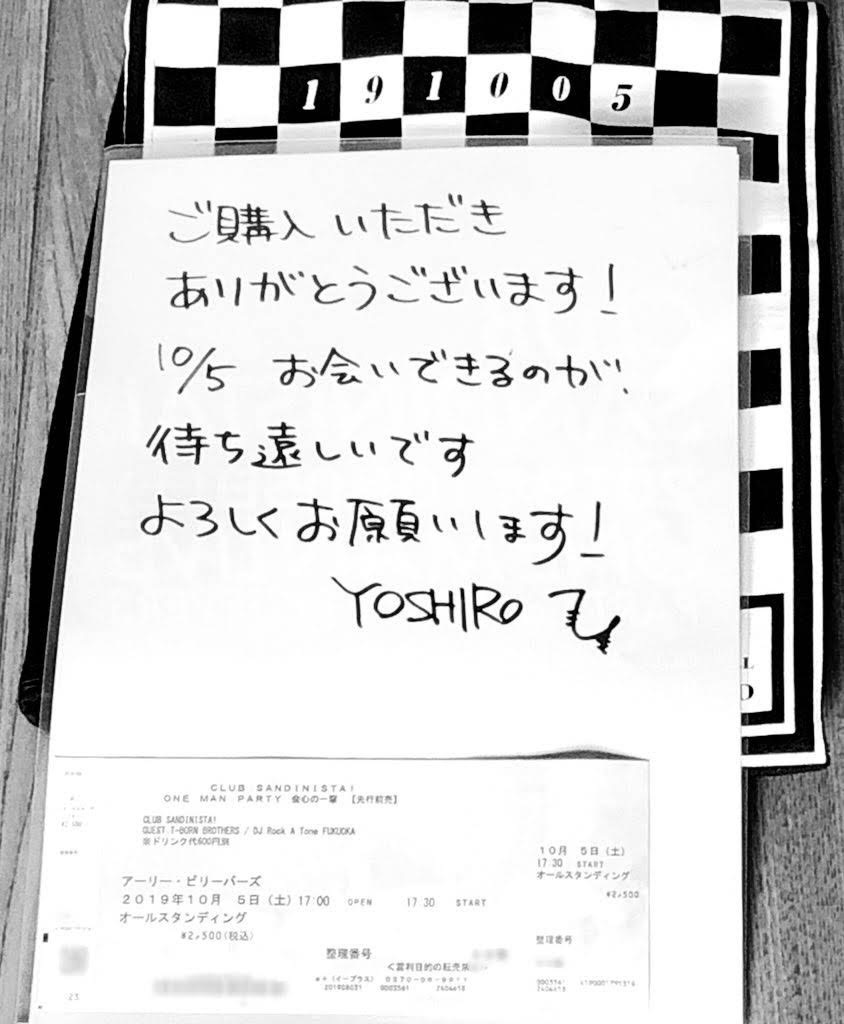 191005
ご購入いただき
ありがとうございます!
10/5 お会いできるのが
待ち遠しいです
よろしくお願いします!
YOSHIRO
L
D
CLUB SANDINISTA!
ONE MAN PARTY 会心の一撃 【先行前売】
CLUB SANDINISTA!
GUEST T-BORN BROTHERS / DJ Rock A Tone FUKUOKA
※ドリンク代600円別
アーリー・ビリーバーズ
2019年10月 5日(土) 17:00 OPEN 17:30 START
オールスタンディング
¥2,500(税込)
整理番号
<営利目的の転売禁
(イープラス) 0570-06-9911
20190831 0003561 2404618
10月 5日(土)
17:30 START
オールスタンディング
¥2,500
整理番号
0003561
2404618
23